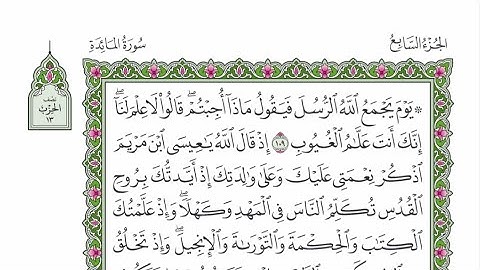 سُورَةُ المَائِدَةِ
الجُزْءُ السَّابِعُ
نِصْفُ
الحِزْبِ
١٣
۞ يَوْمَ يَجْمَعُ ٱللَّهُ ٱلرُّسُلَ فَيَقُولُ مَاذَآ أُجِبْتُمْۖ قَالُواْ لَا عِلْمَ لَنَآۖ
إِنَّكَ أَنتَ عَلَّٰمُ ٱلْغُيُوبِ ١٠٩ إِذْ قَالَ ٱللَّهُ يَٰعِيسَى ٱبْنَ مَرْيَمَ
ٱذْكُرْ نِعْمَتِي عَلَيْكَ وَعَلَىٰ وَٰلِدَتِكَ إِذْ أَيَّدتُّكَ بِرُوحِ
ٱلْقُدُسِ تُكَلِّمُ ٱلنَّاسَ فِي ٱلْمَهْدِ وَكَهْلٗاۖ وَإِذْ عَلَّمْتُكَ
ٱلْكِتَٰبَ وَٱلْحِكْمَةَ وَٱلتَّوْرَىٰةَ وَٱلْإِنجِيلَۖ وَإِذْ تَخْلُقُ